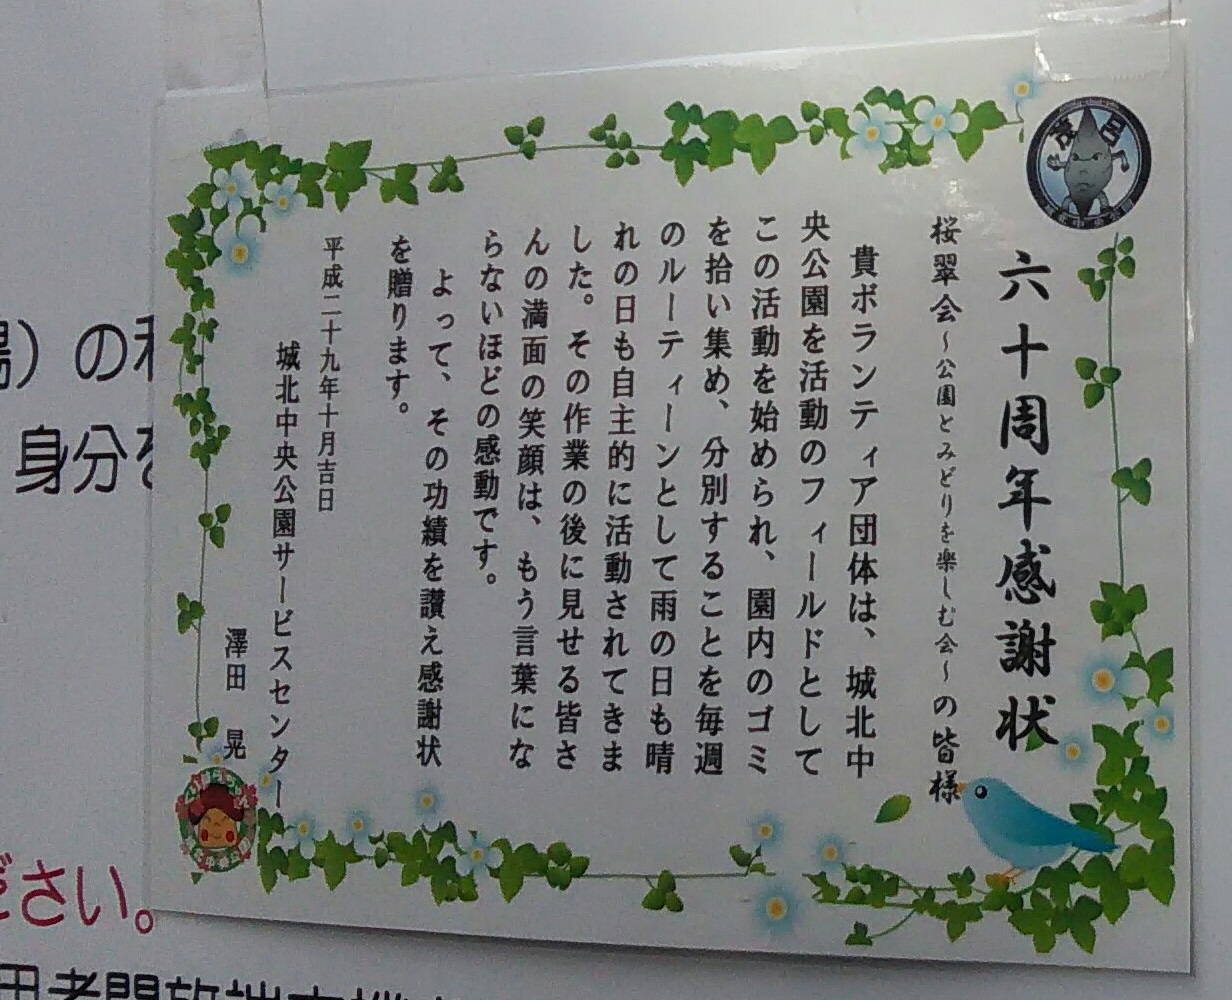 六十周年感謝状
桜翠会～公園とみどりを楽しむ会～の皆様
貴ボランティア団体は、城北中
央公園を活動のフィールドとして
この活動を始められ、園内のゴミ
を拾い集め、分別することを毎週
のルーティーンとして雨の日も晴
れの日も自主的に活動されてきま
した。その作業の後に見せる皆さ
んの満面の笑顔は、もう言葉にな
らないほどの感動です。
よって、その功績を讃え感謝状
を贈ります。
平成二十九年十月吉日
城北中央公園サービスセンター
澤田 晃
茂呂
）の
身分を
ださい。